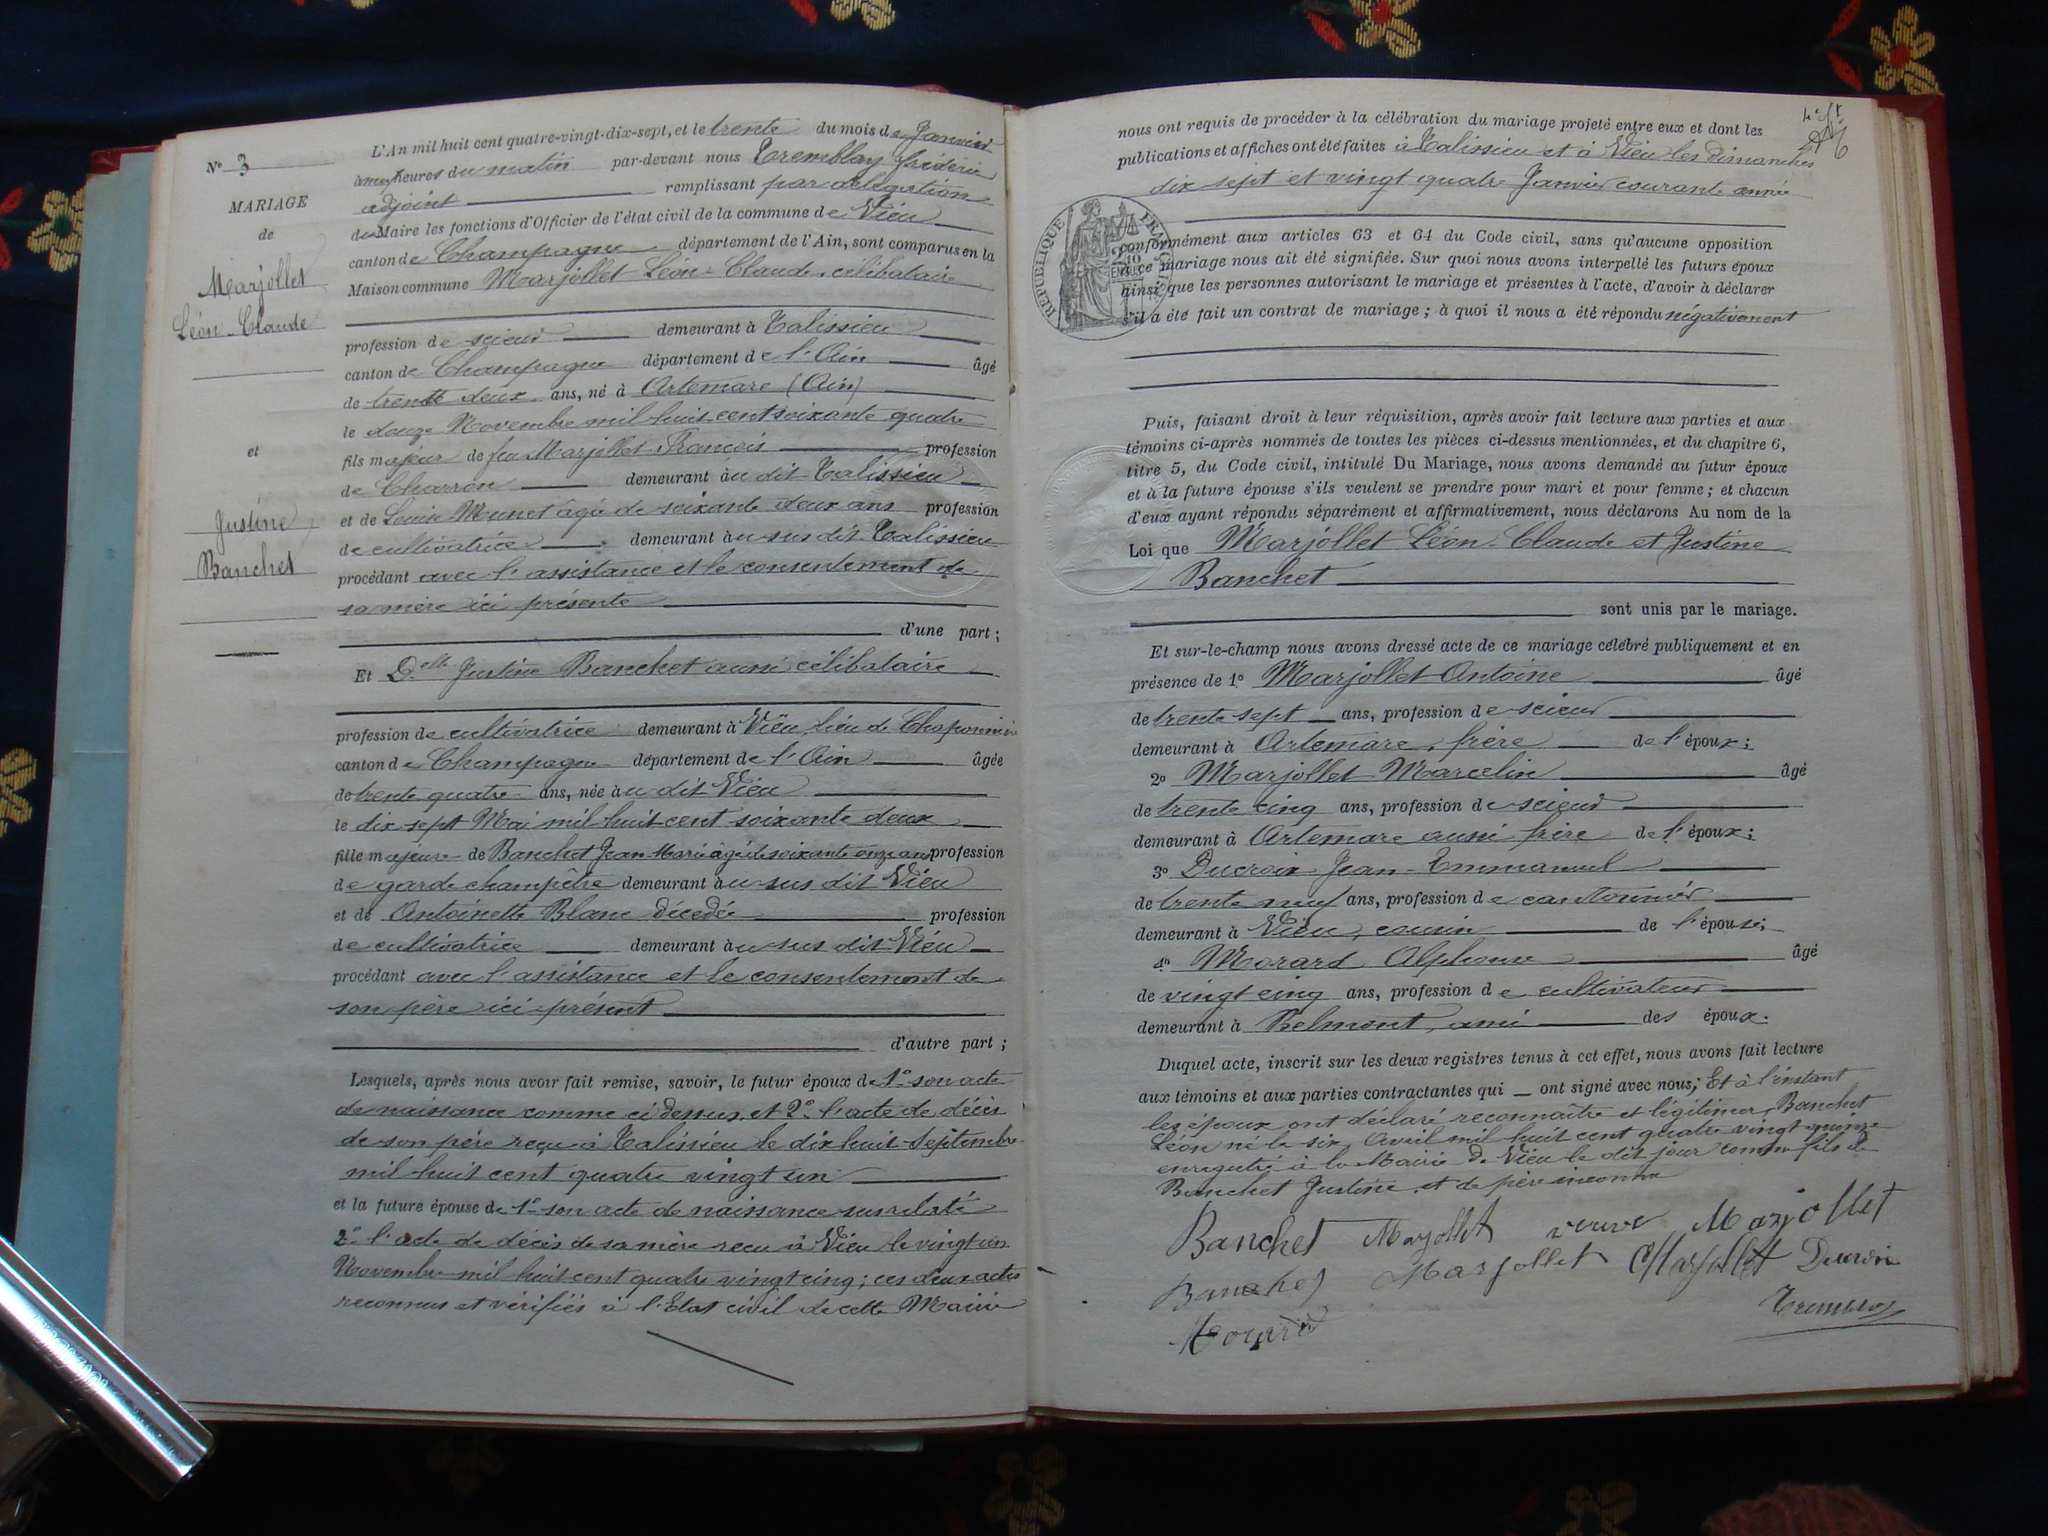 N° 3
MARIAGE
de
Marjollet
Léon-Claude
et
Justine
Banchet
L'An mil huit cent quatre-vingt-dix-sept, et le trente du mois de Janvier
heures du matin par-devant nous Tremblay frédéric
adjoint remplissant par délégation
du Maire les fonctions d'Officier de l'état civil de la commune de Vieu
canton de Champagne département de l'Ain, sont comparus en la
Maison commune Marjollet Léon-Claude, célibataire
profession de scieur demeurant à Talissieu
canton de Champagne département de l'Ain âgé
de trente deux ans, né à Artemare (Ain)
le douze Novembre mil huit cent soixante quatre
fils majeur de feu Marjollet François profession
de Charron demeurant au dit Talissieu
et de Louise Munet âgée de soixante deux ans profession
de cultivatrice demeurant au sus dit Talissieu
procédant avec l'assistance et le consentement de
sa mère ici présente
d'une part ;
Et Delle Justine Banchet aussi célibataire
profession de cultivatrice demeurant à Vieu, lieu de
canton de Champagne département de l'Ain âgée
de trente quatre ans, née au dit Vieu
le dix sept Mai mil huit cent soixante deux
fille majeure de Banchet Jean Marie âgé de soixante onze ans profession
de garde champêtre demeurant au sus dit Vieu
et de Antoinette Blanc décédée profession
de cultivatrice demeurant au sus dit Vieu
procédant avec l'assistance et le consentement de
son père ici présent
d'autre part ;
Lesquels, après nous avoir fait remise, savoir, le futur époux de 1° son acte
de naissance comme ci dessus et 2° l'acte de décès
de son père reçu à Talissieu le dix huit Septembre
mil huit cent quatre vingt un
et la future épouse de 1° son acte de naissance susrelaté
2° l'acte de décès de sa mère reçu à Vieu le vingt un
Novembre mil huit cent quatre vingt cinq ; ces deux actes
reconnus et vérifiés à l'Etat civil de cette Mairie
nous ont requis de procéder à la célébration du mariage projeté entre eux et dont les
publications et affiches ont été faites à Talissieu et à Vieu les dimanches
dix sept et vingt quatre Janvier courante année
RÉPUBLIQUE FRANÇAISE
conformément aux articles 63 et 64 du Code civil, sans qu'aucune opposition
à ce mariage nous ait été signifiée. Sur quoi nous avons interpellé les futurs époux
ainsi que les personnes autorisant le mariage et présentes à l'acte, d'avoir à déclarer
s'il a été fait un contrat de mariage ; à quoi il nous a été répondu négativement
Puis, faisant droit à leur réquisition, après avoir fait lecture aux parties et aux
témoins ci-après nommés de toutes les pièces ci-dessus mentionnées, et du chapitre 6,
titre 5, du Code civil, intitulé Du Mariage, nous avons demandé au futur époux
et à la future épouse s'ils veulent se prendre pour mari et pour femme ; et chacun
d'eux ayant répondu séparément et affirmativement, nous déclarons Au nom de la
Loi que Marjollet Léon-Claude et Justine
Banchet
sont unis par le mariage.
Et sur-le-champ nous avons dressé acte de ce mariage célébré publiquement et en
présence de 1° Marjollet Antoine âgé
de trente sept ans, profession de scieur
demeurant à Artemare, frère de l'époux ;
2° Marjollet Marcelin âgé
de trente cinq ans, profession de scieur
demeurant à Artemare aussi frère de l'époux ;
3° Ducroix Jean-Emmanuel
de trente neuf ans, profession de cantonnier
demeurant à Vieu, cousin de l'épouse ;
4° Morard Alphonse âgé
de vingt cinq ans, profession de cultivateur
demeurant à Belmont, ami des époux.
Duquel acte, inscrit sur les deux registres tenus à cet effet, nous avons fait lecture
aux témoins et aux parties contractantes qui ont signé avec nous ; Et à l'instant
les époux ont déclaré reconnaître et légitimer, Banchet
Léon né le six Avril mil huit cent quatre vingt
enregistré à la Mairie de Vieu le dit jour comme fils de
Banchet Justine et de père inconnu
Banchet Marjollet veuve Marjollet
Banchet Marjollet Marjollet Ducroix
Morard
Tremblay